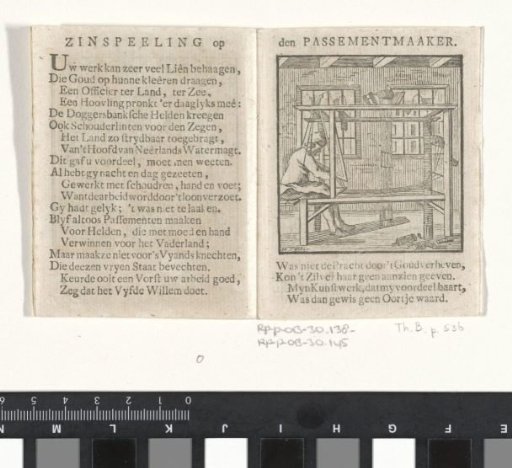 ZINSPEELING op
Uw werk kan zeer veel Liên behaagen,
Die Goud op hunne kleêren draagen,
Een Officier ter Land, ter Zee.
Een Hoovling pronkt 'er daaglyks meê:
De Doggersbanksche Helden kreegen
Ook Schouderlinten voor den Zegen,
Het Land zo strydbaar toegebragt,
Van 't Hoofd van Neêrlands Watermagt.
Dit gaf u voordeel, moet men weeten.
Al hebt gy nacht en dag gezeeten,
Gewerkt met schoudren, hand en voet;
Want de arbeid word door 't loon verzoet.
Gy hadt gelyk; 't was niet te laaken.
Blyf altoos Passementen maaken
Voor Helden, die met moed en hand
Verwinnen voor het Vaderland;
Maar maakze niet voor 's Vyands knechten,
Die deezen vryen Staat bevechten.
Keurde ooit een Vorst uw arbeid goed,
Zeg dat het Vyfde Willem doet.
den PASSEMENTMAAKER.
Was niet de Pracht door 't Goud verheven,
Kon 't Zilver haar geen aanzien geeven.
Myn Kunstwerk, dat my voordeel baart,
Was dan gewis geen Oortje waard.
RP-P-OB-30.138-
RP-P-OB-30.145
Th. B. p. 536
0
6 5 4 3 2 1 0
N M L K J I H G F E